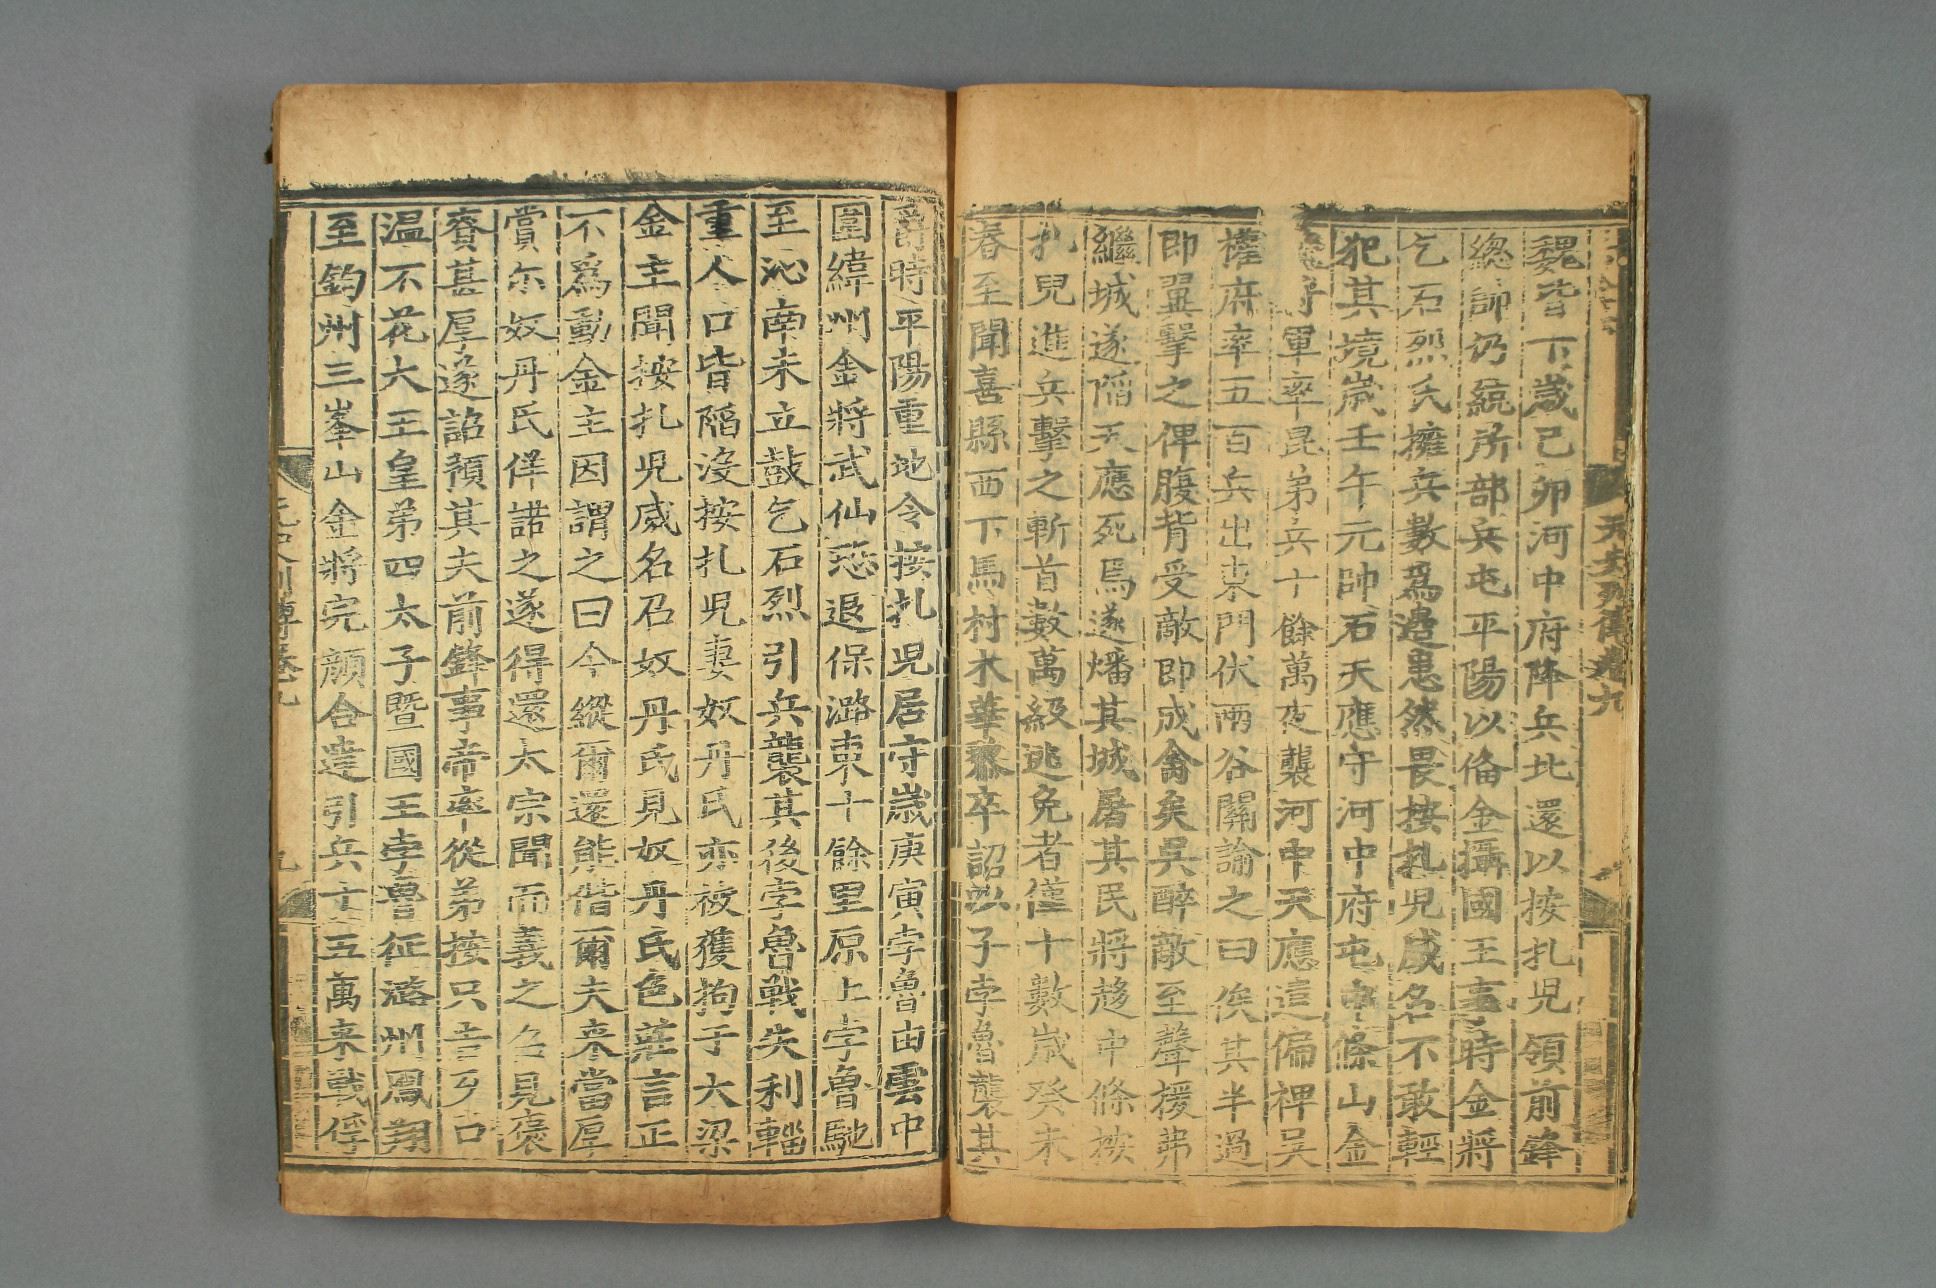 元史列傳卷九
魏皆下歲己卯河中府降兵北還以按扎児領前鋒
緫帥仍統所部兵屯平陽以俻金攝國王事時金將
乞石烈氏擁兵數爲邉患然畏按扎児威名不敢輕
犯其境歲壬午元帥石天應守河中府屯中條山金
將軍率昆弟兵十餘萬夜襲河中天應遣偏裨吳
權府率五百兵出東門伏兩谷間諭之曰俟其半過
即翼擊之俾腹背受敵即成禽矣吳醉敵至聲援弗
繼城遂陷天應死焉遂燔其城屠其民將趍中條按
扎兒進兵擊之斬首數萬級逃免者僅十數歲癸未
春至聞喜縣西下馬村木華黎卒詔以子孛魯襲其
爵時平陽重地令按扎児居守歲庚寅孛魯由雲中
圍緯州金將武仙恐退保潞東十餘里原上孛魯馳
至沁南未立鼓乞石烈引兵襲其後孛魯戰失利輜
重人口皆陷沒按扎児妻奴丹氏亦被獲拘于大梁
金主聞按扎児威名召奴丹氏見奴丹氏色莊言正
不爲動金主因謂之曰今縱爾還能偕爾夫来當厚
賞尓奴丹氏佯諾之遂得還太宗聞而義之召見褒
賚甚厚遂詔預其夫前鋒事帝率從弟按只吉歹口
温不花大王皇弟四太子曁國王孛魯征潞州鳳翔
至鈞州三峯山金將完顔合達引兵十五萬来戰俘
元史列傳卷九
九